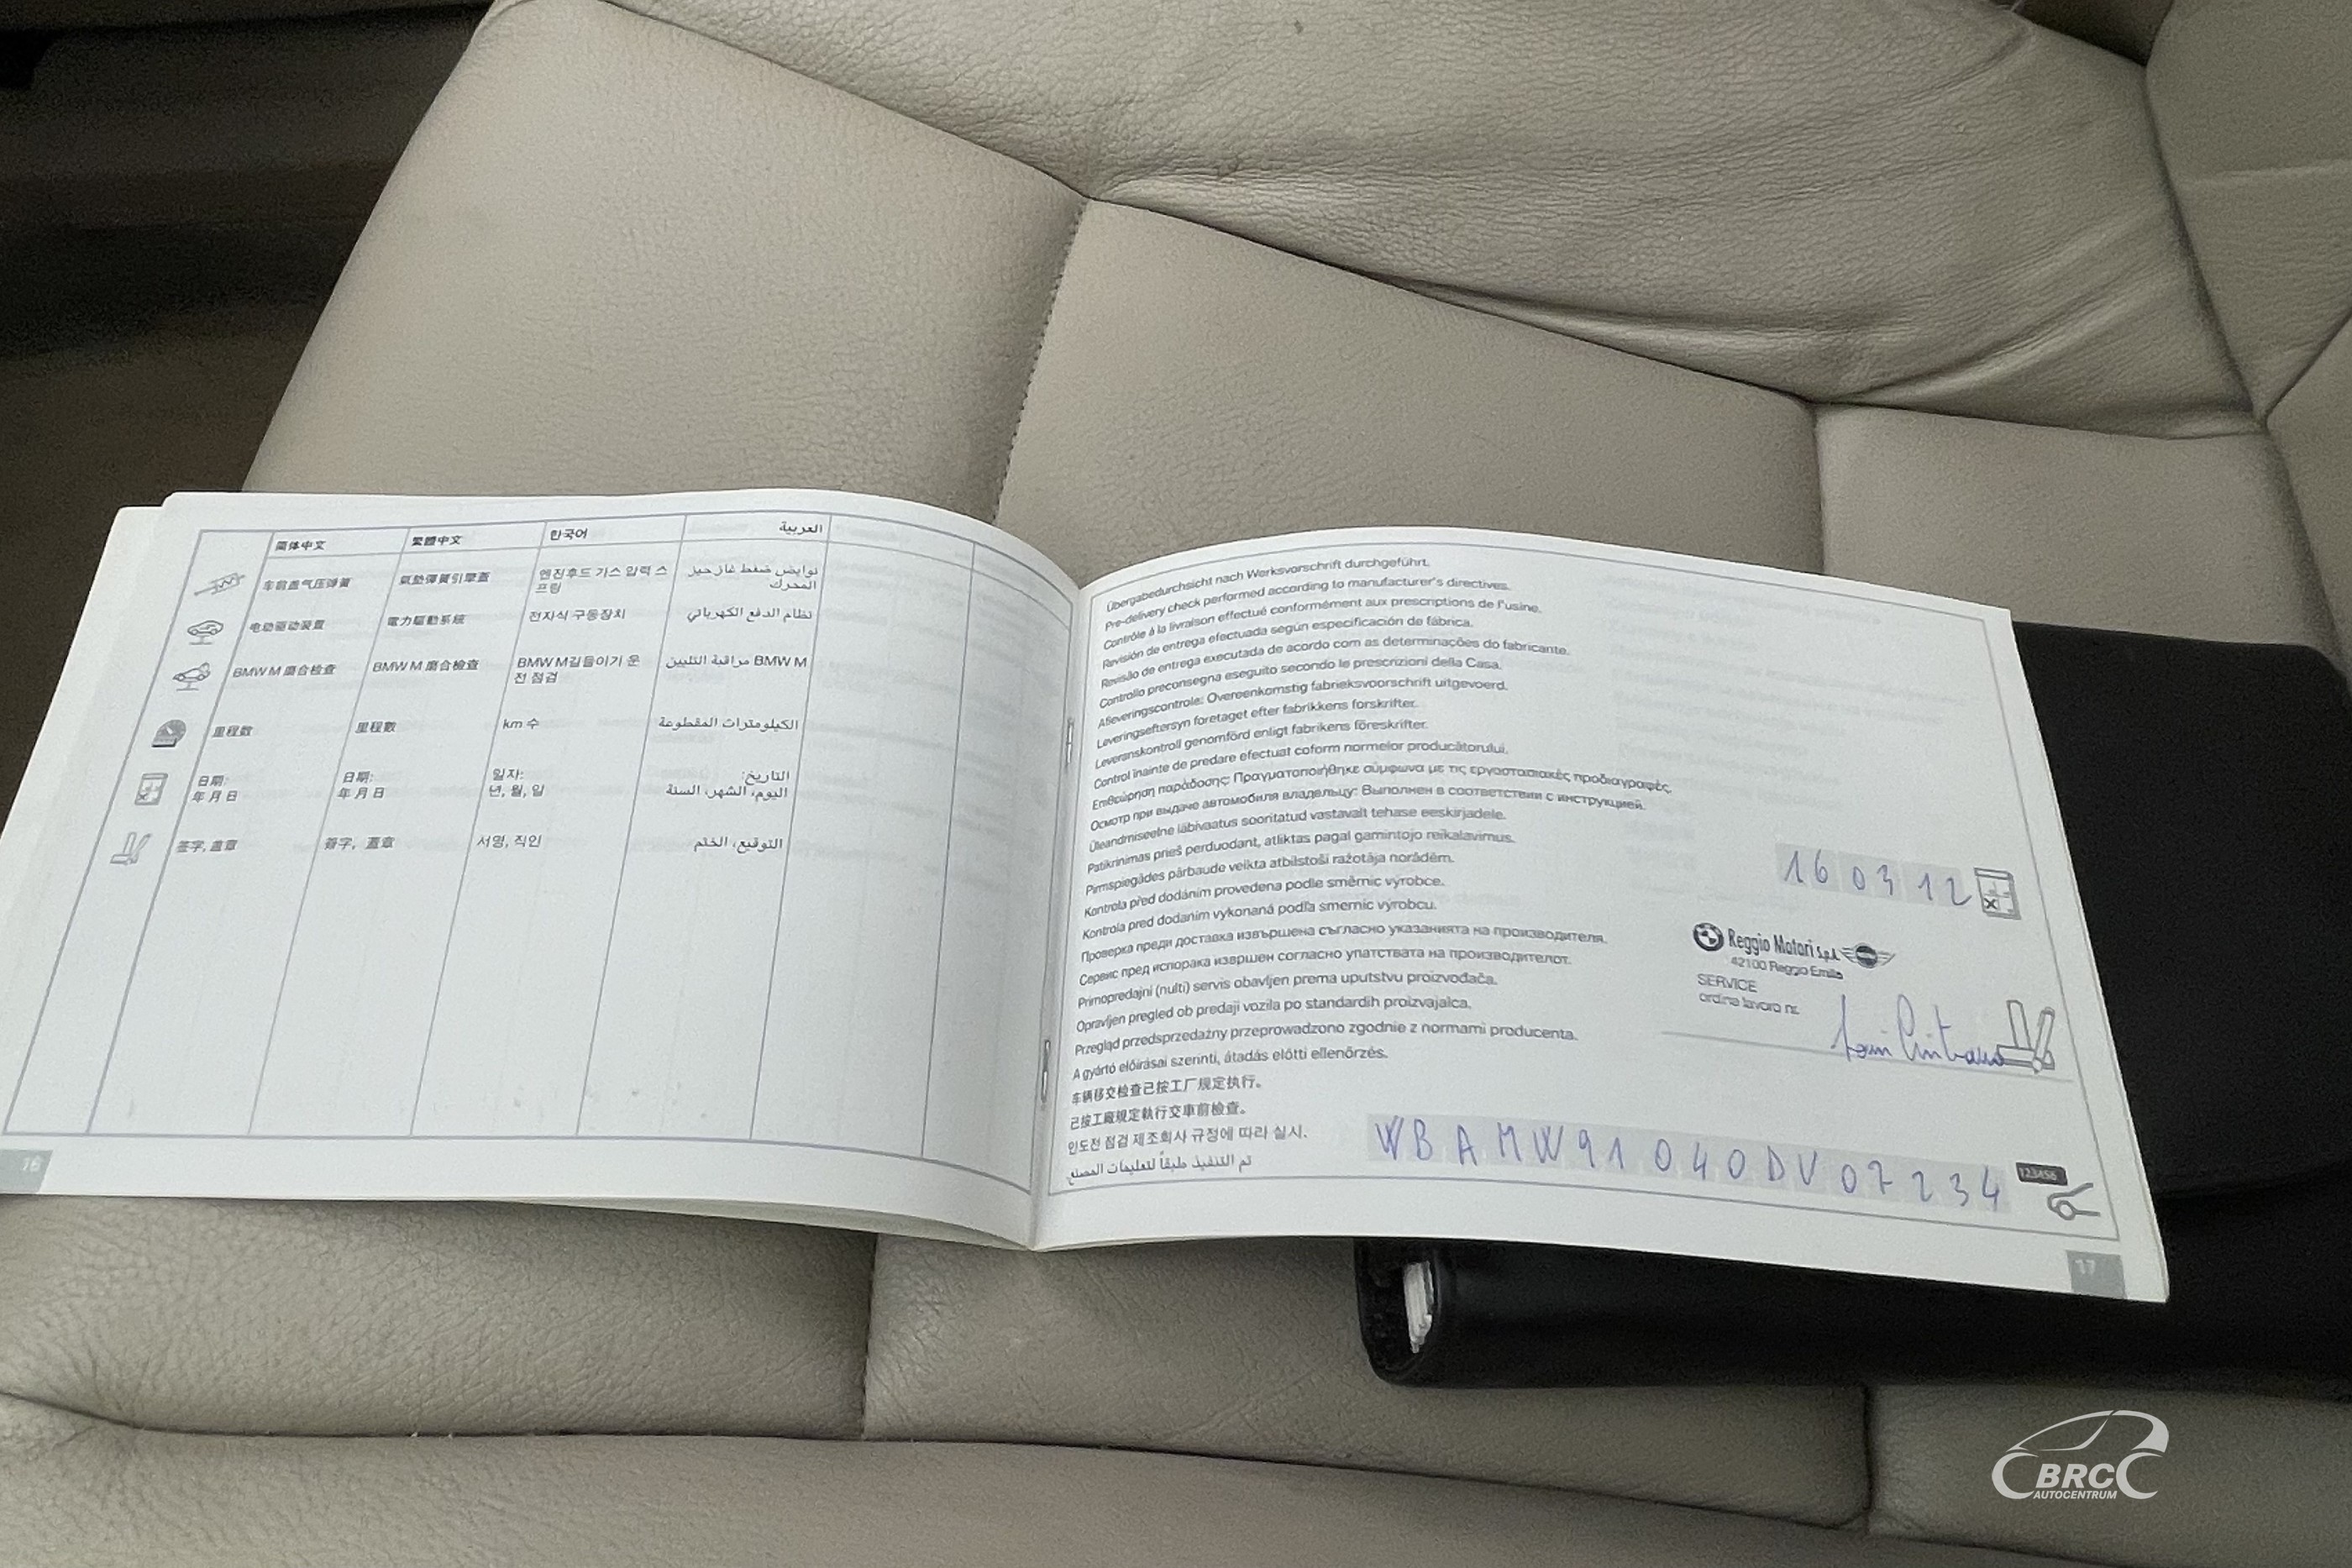 简体中文 繁體中文 한국어 العربية
车前盖气压弹簧 氣墊彈簧引擎蓋 엔진후드 가스 압력 스프링 نوابض ضغط غاز حيز المحرك
电动驱动装置 電力驅動系統 전자식 구동장치 نظام الدفع الكهربائي
BMW M 磨合检查 BMW M 磨合檢查 BMW M길들이기 운전 점검 BMW M مراقبة التليين
里程数 里程數 km 수 الكيلومترات المقطوعة
日期: 日期: 일자: التاريخ:
年 月 日 年 月 日 년, 월, 일 اليوم، الشهر، السنة
签字, 盖章 簽字, 蓋章 서명, 직인 التوقيع، الختم
16
Übergabedurchsicht nach Werksvorschrift durchgeführt.
Pre-delivery check performed according to manufacturer's directives.
Contrôle à la livraison effectué conformément aux prescriptions de l'usine.
Revisión de entrega efectuada según especificación de fábrica.
Revisão de entrega executada de acordo com as determinações do fabricante.
Controllo preconsegna eseguito secondo le prescrizioni della Casa.
Afleveringscontrole: Overeenkomstig fabrieksvoorschrift uitgevoerd.
Leveringseftersyn foretaget efter fabrikkens forskrifter.
Leveranskontroll genomförd enligt fabrikens föreskrifter.
Control înainte de predare efectuat coform normelor producătorului.
Επιθεώρηση παράδοσης: Πραγματοποιήθηκε σύμφωνα με τις εργοστασιακές προδιαγραφές.
Осмотр при выдаче автомобиля владельцу: Выполнен в соответствии с инструкцией.
Üleandmiseelne läbivaatus sooritatud vastavalt tehase eeskirjadele.
Patikrinimas prieš perduodant, atliktas pagal gamintojo reikalavimus.
Pirmspiegādes pārbaude veikta atbilstoši ražotāja norādēm.
Kontrola před dodáním provedena podle směrnic výrobce.
Kontrola pred dodaním vykonaná podľa smerníc výrobcu.
Проверка преди доставка извършена съгласно указанията на производителя.
Сервис пред испорака извршен согласно упатствата на производителот.
Primopredajni (nulti) servis obavljen prema uputstvu proizvođača.
Opravljen pregled ob predaji vozila po standardih proizvajalca.
Przegląd przedsprzedażny przeprowadzono zgodnie z normami producenta.
A gyártó előírásai szerinti, átadás előtti ellenőrzés.
车辆移交检查已按工厂规定执行。
已按工廠規定執行交車前檢查。
인도전 점검 제조회사 규정에 따라 실시.
تم التنفيذ طبقاً لتعليمات المصنع.
16 03 12
Reggio Motori S.p.A.
42100 Reggio Emilia
SERVICE
ordine lavoro nr.
WBAMW91040DV07234
123456
17
BRC
AUTOCENTRUM